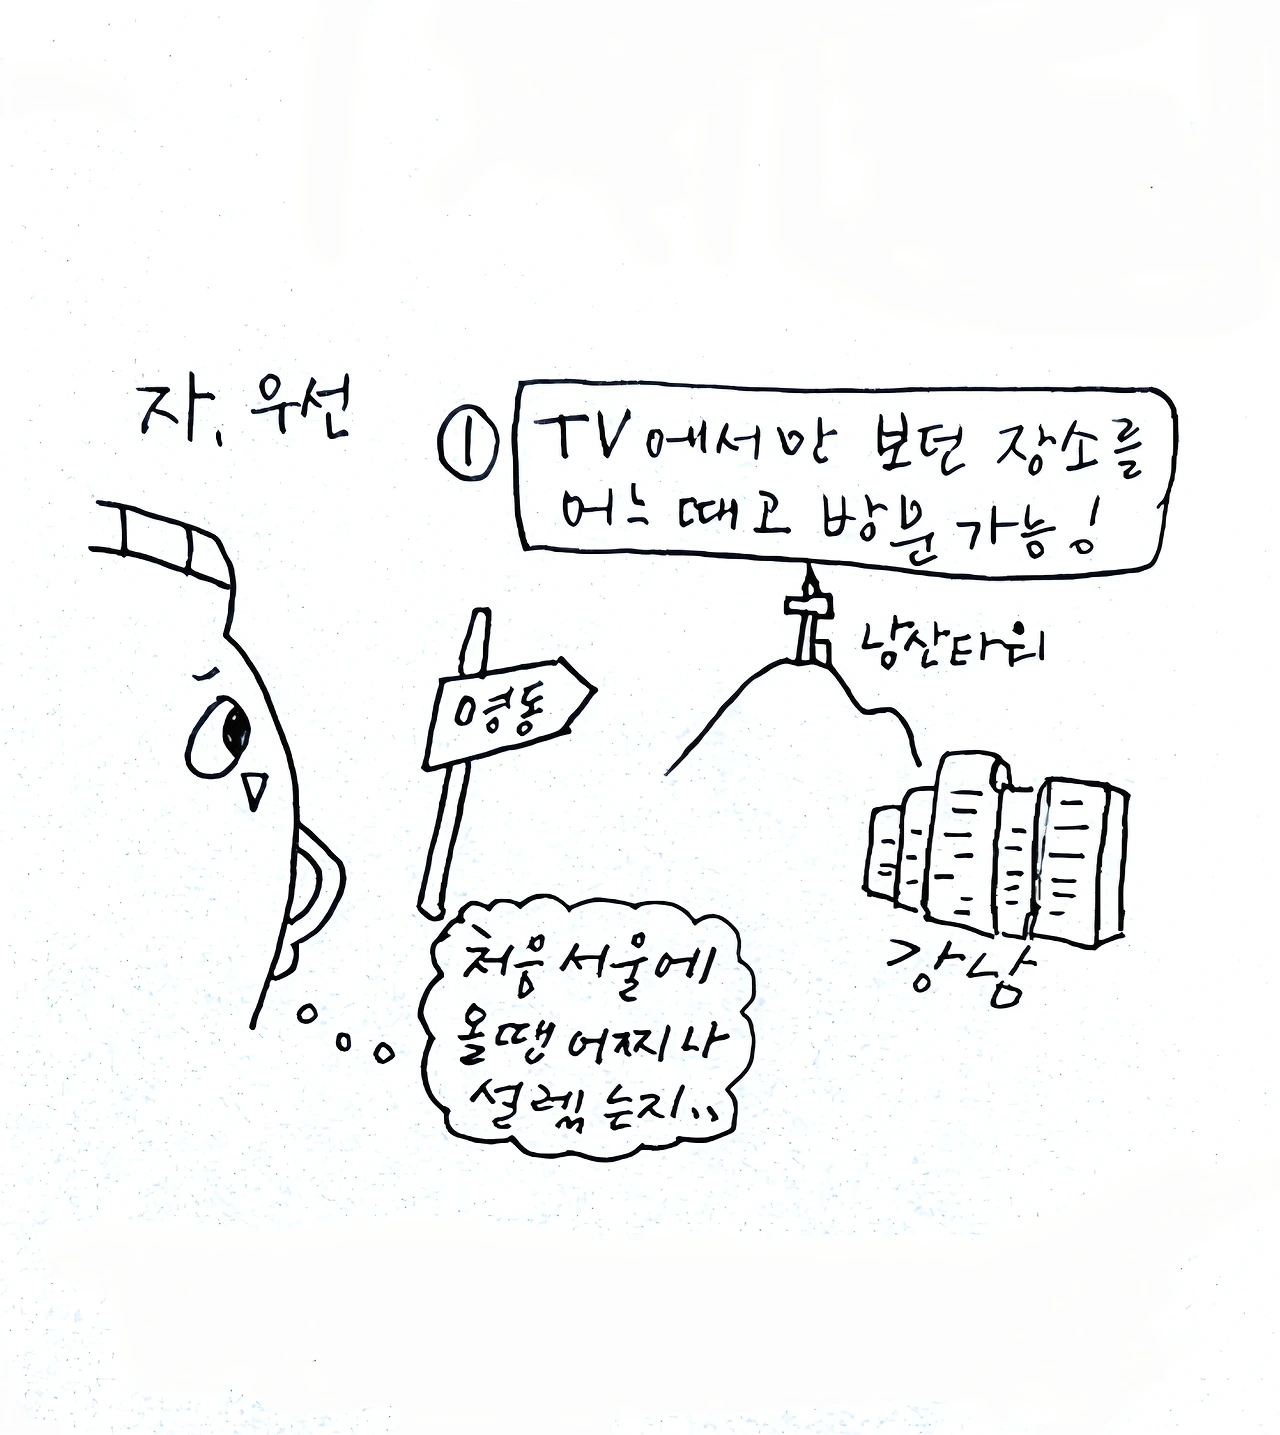 자, 우선
①
TV에서만 보던 장소를
어느 때고 방문 가능!
남산타워
명동
강남
처음 서울에
올땐 어찌나
설렘는지..